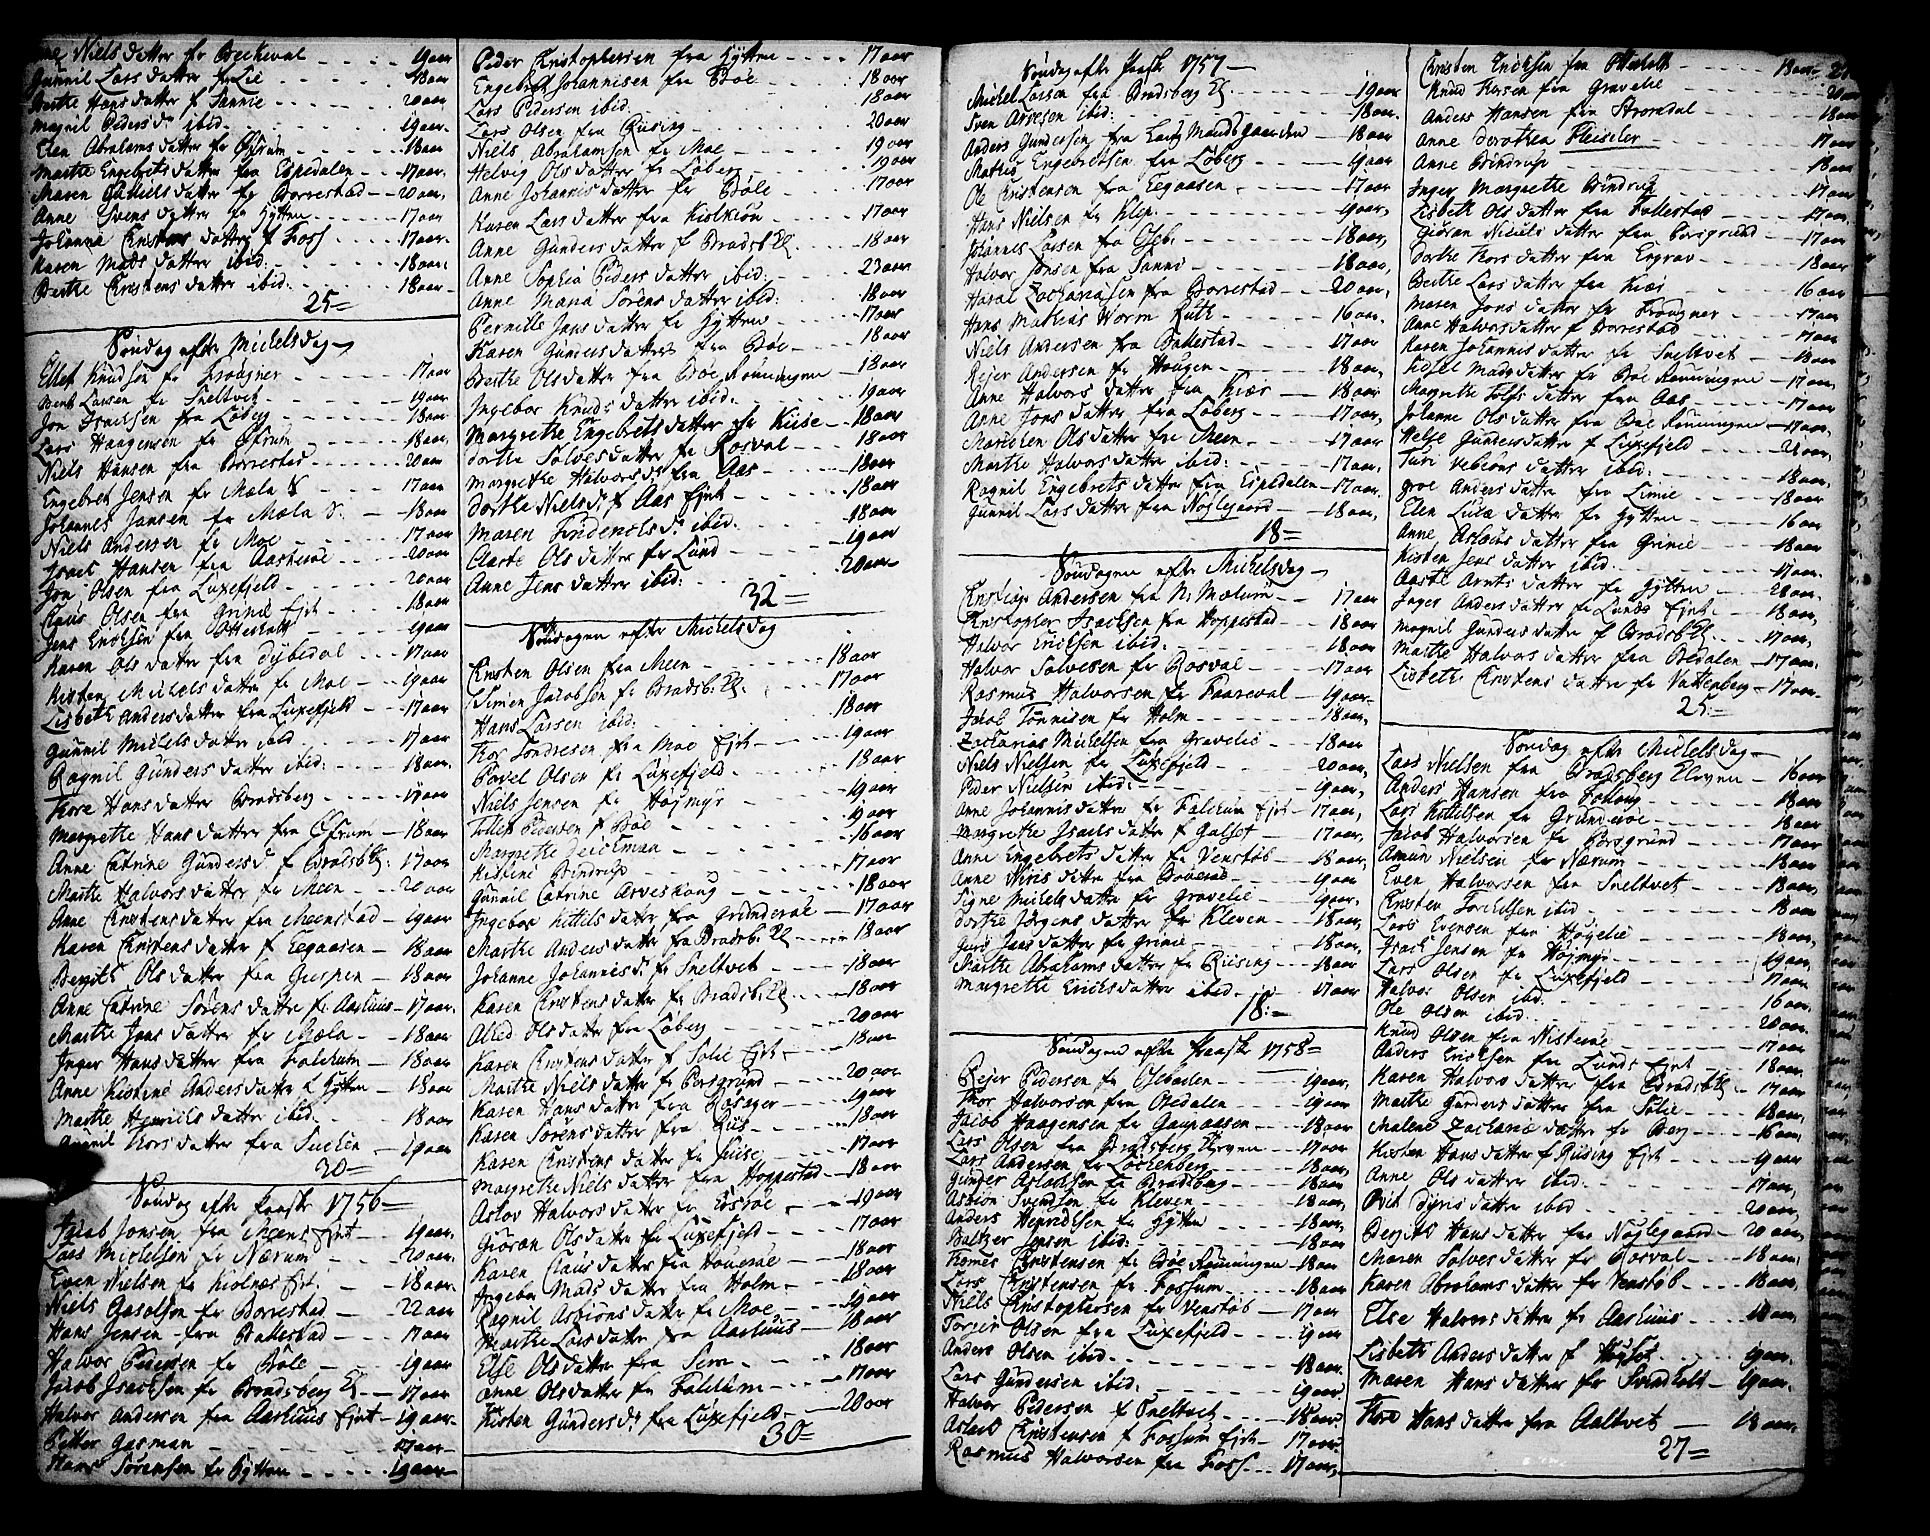 Niels datter fr Beckeval 19 aar
Gunnil Lars datter fr Lie 18 aar
Berthe Hans datter f Sannie 20 aar
Magnil Peders dr ibid. 19 aar
Elen Abrahams datter fr Øfrum 18 aar
Marthe Engebrets datter fra Espedalen 17 aar
Maren Gabriels datter fr Borrestad 20 aar
Anne Svens datter fr Hytten 17 aar
Johanne Christens datter f Foss 17 aar
Karen Mads datter ibid. 18 aar
Berthe Christens datter ibid. 18 aar
25=
Søndag efter Mickelsdag
Ellef Knudsen fr Frougner 17 aar
Bent Larsen fr Sneltved 19 aar
Jon Isachsen fra Løberg 18 aar
Lars Haagensen fr Øfrum 18 aar
Niels Hansen fra Borrestad 20 aar
Engebret Jensen fr Mæla 17 aar
Johannes Jansen fr Mæla 18 aar
Niels Andersen fr Moe 17 aar
Israel Hansen fra Aasterøe 20 aar
Jon Olsen fra Luxefjeld 20 aar
Claus Olsen fra Grinie Ejet 18 aar
Jens Erichsen fra Otterholt 19 aar
Karen Ols datter fra Dybedal 17 aar
Kirsten Mickels datter fr Moe 19 aar
Lisbeth Anders datter fra Luxefjeld 17 aar
Gunnil Mickels datter ibid. 17 aar
Ragnil Gunders datter ibid. 18 aar
Thore Hans datter Bradsberg 17 aar
Margrethe Hans datter fra Øfrum 18 aar
Anne Catrine Gunders d f Bradsb. 17 aar
Marthe Halvors datter fr Meen 20 aar
Anne Christens datter fra Meenstad 19 aar
Karen Christens datter f Eegaasen 18 aar
Bergit Ols datter fra Gierpen 18 aar
Anne Catrine Sørens datter fr Aarhuus 17 aar
Marthe Jans datter fr Mæla 18 aar
Inger Hans datter fra Falchum 18 aar
Anne Kirstine Anders datter f Hytten 18 aar
Marthe Henrichs datter ibid. 18 aar
Gunnil Thors datter fra 19 aar
30=
Søndag efter Paaske 1756=
Jacob Jonsen fra Meens Ejet 19 aar
Lars Mickelsen fr Nærum 20 aar
Even Nielsen fr Kiolnes Ejet 18 aar
Niels Gasolsen fr Borrestad 22 aar
Hans Jensen fra Ballestad 17 aar
Halvor Pedersen fr Bøle 19 aar
Jacob Isachsen fr Bradsberg Cl. 17 aar
Halvor Andersen fra Aarhuus Ejet 19 aar
Petter Gasman 17 aar
Hans Sørensen fr Hytten 19 aar
Peder Christophersen fra Hytten 17 aar
Engebret Johannisen fra Bøe 18 aar
Lars Pedersen ibid. 18 aar
Lars Olsen fra Riising 20 aar
Niels Abrahamsen fr Moe 19 aar
Helvig Ols datter fr Løberg 19 aar
Anne Johannis datter fr Bøle 17 aar
Karen Lars datter fra Kiølkiøn 17 aar
Anne Gunders datter f Bradsb. Cl. 18 aar
Anne Sophia Peders datter ibid. 23 aar
Anne Maria Sørens datter ibid. 18 aar
Pernille Jans datter fr Hytten 17 aar
Karen Gunders datter fra Bøe 18 aar
Berthe Ols datter fra Bøe Rønningen 18 aar
Ingebor Knuds datter ibid. 19 aar
Margrethe Engebrets datter fr Kiise 18 aar
Dorthe Solves datter fr Rosval 18 aar
Margrethe Halvors dr fra Aas 18 aar
Dorthe Niels dr f Aas Ejet 18 aar
Maren Findenols dr ibid. 18 aar
Aaste Ols datter fr Lund 19 aar
Anne Jens datter ibid: 20 aar
32=
Søndagen efter Mickelsdag
Christen Olsen fra Meen 18 aar
Simen Jacobsen fr Bradsb. Cl. 17 aar
Hans Larsen ibid. 18 aar
Thor Sondresen fra Moe Ejet 19 aar
Povel Olsen fr Luxefjeld 18 aar
Niels Jensen fr Højmyr 19 aar
Tollef Pedersen f Bøe 19 aar
Margrethe Deichman 16 aar
Kistine Bindrup 17 aar
Gunnil Catrine Arveskoug 18 aar
Ingebor Kittils datter fra Grinderøe 17 aar
Marthe Anders datter fra Bradsb. Cl. 18 aar
Johanne Johannis dr fr Sneltvet 18 aar
Karen Christens datter fr Bradsb. Cl. 18 aar
Alled Ols datter fra Løberg 20 aar
Karen Christens datter f Solie Ejet 18 aar
Marthe Niels datter fr Porsgrund 20 aar
Karen Hans datter fra Boseger 19 aar
Karen Sørens datter fra Riis 18 aar
Karen Christens datter fr Kiise 17 aar
Margrethe Niels datter fra Hoppestad 18 aar
Aslov Halvors datter fr Losbøe 19 aar
Giøran Ols datter fr Luxefjeld 17 aar
Karen Claus datter fra Houerøe 18 aar
Ingebor Mads datter fra Holm 18 aar
Ragnil Asbiøns datter fr Moe 19 aar
Marthe Lars datter fra Aarhuus 18 aar
Else Ols datter fra Sem 18 aar
Anne Ols datter fr Falchum 17 aar
Kisten Gunders dr fra Luxefjeld 20 aar
30=
Søndag efter Paaske 1757
Mickel Larsen fra Bradsberg Cl. 19 aar
Sven Arvesen ibid: 18 aar
Anders Gundersen fra Laug Mands gaarden 18 aar
Mathis Engebretsen fra Løberg 19 aar
Ole Christensen fra Eegaasen 17 aar
Hans Nielsen fr Klep 19 aar
Johannes Larsen fra Oseb. 18 aar
Halvor Jonsen fra Sanni 18 aar
Haral Zachariasen fra Borrestad 20 aar
Hans Mathias Worm Ruth 16 aar
Niels Andersen fra Ballestad 17 aar
Rejer Andersen fr Hougen 18 aar
Anne Halvors datter fra Kiær 18 aar
Anne Jons datter fra Løberg 17 aar
Maricken Ols datter fra Meen 17 aar
Marthe Halvors datter ibid: 17 aar
Ragnil Engebrets datter fra Espedalen 17 aar
Gunnil Lars datter fra Nøglegaard 18 aar
18=
Søndagen efter Mickelsdag
Christian Andersen fra N. Mælum 17 aar
Christopher Isachsen fra Hoppestad 18 aar
Halvor Erichsen ibid. 18 aar
Halvor Solvesen fr Rosval 17 aar
Rasmus Halvorsen fr Faareval 19 aar
Jacob Tønnisen fr Holm 18 aar
Zacharias Mickelsen fra Gravelie 18 aar
Niels Nielsen fr Luxefjeld 20 aar
Peder Nielsen ibid. 19 aar
Anne Johannis datter fr Falchum Ejet 17 aar
Margrethe Isachs datter f Gulset 17 aar
Anne Engebrets datter fr Venstøb 18 aar
Anne Niris datter fra Bøverøe 19 aar
Signe Mickels datter fr Gravelie 19 aar
Dorthe Jørgens datter fr Kleven 18 aar
Guro Jans datter fr Grinie 18 aar
Marthe Abrahams datter fr Riising 18 aar
Margrethe Ericks datter ibid. 17 aar
18:=
Søndagen efter Paaske 1758=
Rejer Pedersen fr Osebaken 19 aar
Thor Halvorsen fra Bedalen 19 aar
Jacob Haagensen fr Gaupaasen 18 aar
Lars Olsen fra Bradsberg Cleven 17 aar
Lars Andersen fr Lochenberg 18 aar
Gunder Aslachsen fr Bradsberg 18 aar
Asbiøn Svendsen fr Kleven 18 aar
Anders Henrichsen fr Hytten 18 aar
Baltzer Jensen ibid: 18 aar
Thomes Christensen fr Bøe Rønningen 18 aar
Lars Christensen fr Fossum 18 aar
Niels Christophersen fr Venstøb 17 aar
Torger Olsen fra Luxefjeld 19 aar
Anders Olsen ibid. 18 aar
Lars Gundersen ibid. 19 aar
Halvor Pedersen f Sneltvet 18 aar
Aslach Christensen f Fossum Ejet 17 aar
Rasmus Halvorsen fra Foss 17 aar
Christen Ericksen fra Otterholt 18 aar
Knud Thorsen fra Gravelie 20 aar
Anders Hansen fra Strømdal 18 aar
Anne Dorothea Fleischer 17 aar
Anne Bindrup 18 aar
Inger Margrethe Bindrup 17 aar
Lisbeth Ols datter fra Follestad 17 aar
Giøran Niciels datter fra Porsgrund 17 aar
Dorthe Thors datter fra Engrav 18 aar
Berthe Lars datter fra Kiær 16 aar
Maren Jons datter fr Frougner 17 aar
Anne Halvors datter f Borrestad 17 aar
Karen Johannis datter fr Sneltvet 18 aar
Sidsel Mads datter fr Bøe Rønningen 17 aar
Margrethe Tolfs datter fra Aas 17 aar
Johanne Ols datter fra Bøe Rønningen 17 aar
Helje Gunders datter f Luxefjeld 21 aar
Turi Vebiøns datter ibid: 18 aar
Groe Anders datter fra Limie 18 aar
Elen Lucæ datter fr Hytten 16 aar
Anne Aslachs datter fra Grinie 18 aar
Kisten Jens datter ibid. 17 aar
Aaste Arnts datter fr Hytten 28 aar
Inger Anders datter fr Lunds Ejet 18 aar
Magnil Gunders datter f Bradsb. Cl. 17 aar
Marthe Halvors datter fra Bedalen 17 aar
Lisbeth Christens datter fr Vattenberg 17 aar
25:=
Søndag efter Mickelsdag
Lars Nielsen fra Bradsberg Cleven 16 aar
Anders Hansen fra Fossum 18 aar
Lars Kittilsen fr Grinderøe 18 aar
Jacob Halvorsen fr Porsgrund 17 aar
Amun Nielsen fr Nærum 18 aar
Even Halvorsen fra Sneltvet 18 aar
Christen Torchelsen ibid 18 aar
Lars Evensen fra Høgelie 18 aar
Isach Jensen fra Højmyr 19 aar
Lars Olsen fr Luxefjeld 17 aar
Halvor Olsen ibid. 16 aar
Ole Olsen ibid. 20 aar
Knud Olsen fra Nisterøe 17 aar
Anders Erichsen fra Lunds Ejet 18 aar
Karen Halvors datter fra Bradsb. Cl. 17 aar
Marthe Gunders datter fra Solie 18 aar
Malene Zachariæ datter fr Berg 16 aar
Kirsten Hans datter f Riising Ejet 19 aar
Anne Ols datter ibid. 17 aar
Berit Dyris datter ibid 20 aar
Bergith Hans datter fra Nøglegaard 20 aar
Maren Solves datter fr Rosval 18 aar
Karen Abrahams datter fr Venstøb 18 aar
Else Halvors datter fr Aarhuus 18 aar
Lisbeth Anders datter f Høyset 19 aar
Maren Hans datter fr Svindholt 19 aar
Thore Hans datter fra Aaltvet 18 aar
27=